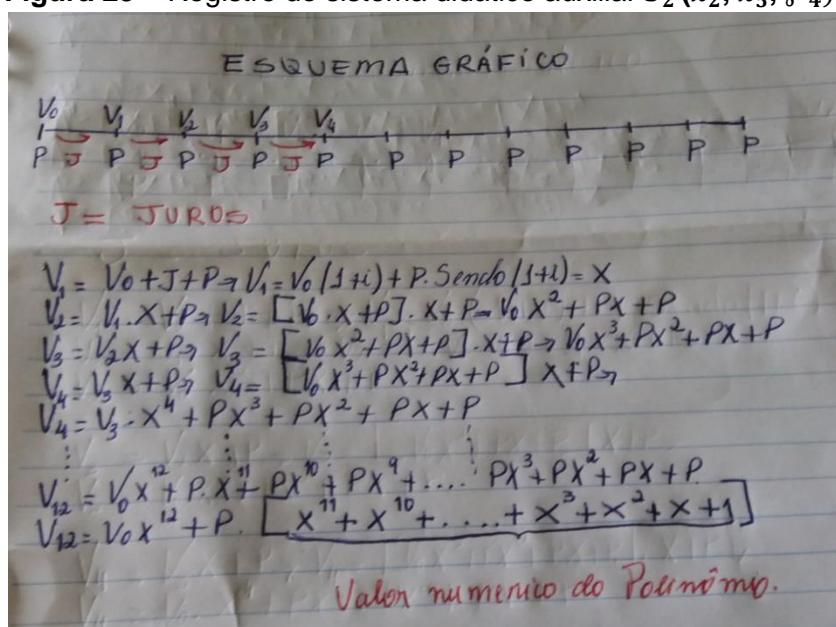 ESQUEMA GRÁFICO
V₀ V₁ V₂ V₃ V₄
P J P J P J P J P P P P P P P P
J = JUROS
V₁ = V₀ + J + P → V₁ = V₀ (1+i) + P. Sendo (1+i) = X
V₂ = V₁ . X + P → V₂ = [V₀ . X + P] . X + P → V₀ X² + PX + P
V₃ = V₂X + P → V₃ = [V₀ X² + PX + P] . X + P → V₀X³ + PX² + PX + P
V₄ = V₃ X + P → V₄ = [V₀ X³ + PX² + PX + P] X + P →
V₄ = V₃ . X⁴ + PX³ + PX² + PX + P
V₁₂ = V₀X¹² + P. X¹¹ + PX¹⁰ + PX⁹ + .... PX³ + PX² + PX + P
V₁₂ = V₀X¹² + P . [X¹¹ + X¹⁰ + ..... + X³ + X² + X + 1]
Valor numerico do Polinômio.